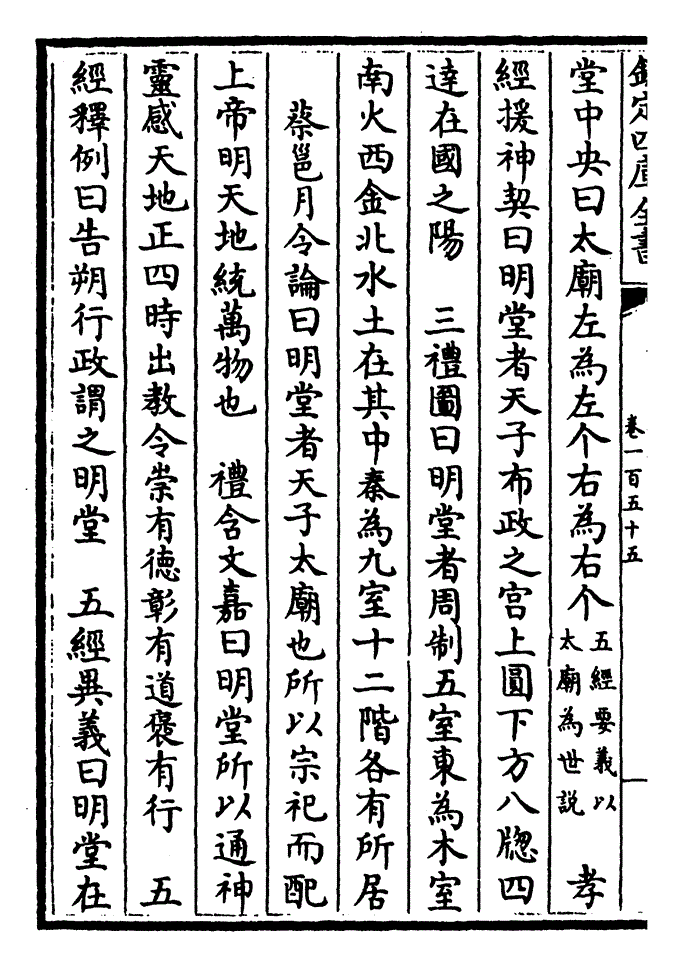 欽定四庫全書
卷一百五十五
堂中央曰太廟左為左个右為右个五經要義以太廟為世説　孝
經援神契曰明堂者天子布政之宫上圓下方八牕四
達在國之陽　三禮圖曰明堂者周制五室東為木室
南火西金北水土在其中秦為九室十二階各有所居
蔡邕月令論曰明堂者天子太廟也所以宗祀而配
上帝明天地統萬物也　禮含文嘉曰明堂所以通神
靈感天地正四時出教令崇有德彰有道褒有行　五
經釋例曰告朔行政謂之明堂　五經異義曰明堂在